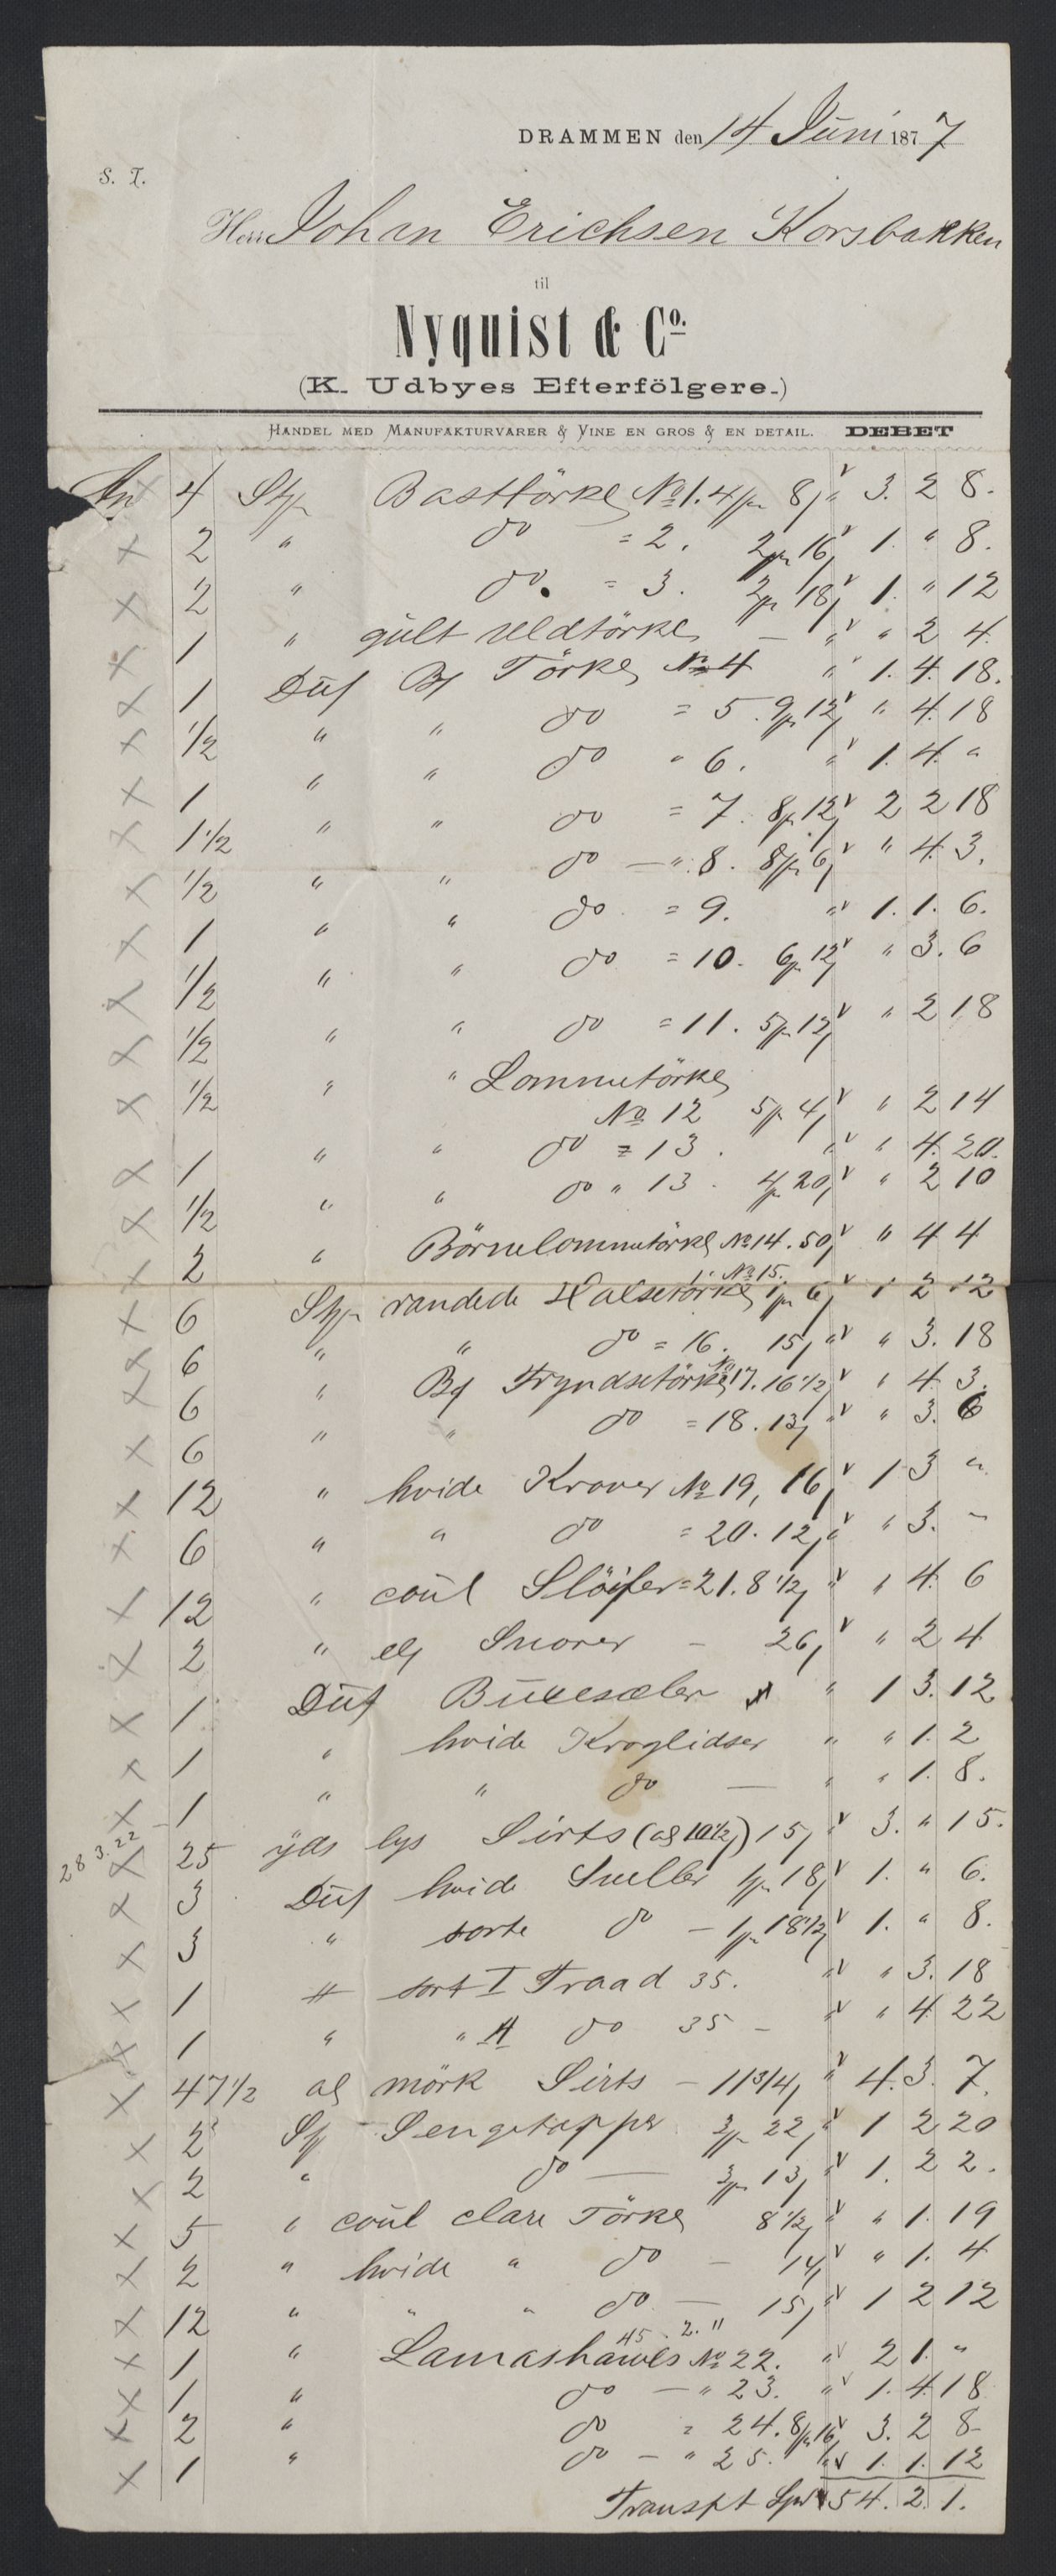 DRAMMEN den 14 Juni 1877
S. T.
Herr Johan Erichsen Korsbakken
til
Nyquist & Co.
(K. Udbyes Efterfölgere.)
HANDEL MED MANUFAKTURVARER & VINE EN GROS & EN DETAIL. DEBET
An 4 Stk Basttörkl No 1. 4/ 8, " 3. 2 8.
2 " do = 2. 2/ 16, 1. " 8.
2 " do. = 3. 2/ 18, 1. " 12
1 " gult uldtörkl — " " 2 4.
1 Dus Bs Törkl No 4 " 1. 4. 18.
1/2 " " do = 5. 9/ 12, " 4. 18
1 " " do " 6. " 1. 4. "
1 1/2 " " do = 7. 8/ 12, 2 2 18
1/2 " " do — " 8. 8/ 6, " 4. 3.
1 " " do = 9. " 1. 1. 6.
1/2 " " do = 10. 6/ 12, " 3. 6
1/2 " " do = 11. 5/ 12, " 2 18
1/2 " " Lommetörkl
No 12 5/ 4, " 2 14
1 " " do = 13. " " 4. 20.
1/2 " " do " 13. 4/ 20, " 2 10
2 " Börnelommetörkl No 14. 50, " 4 4
No 15.
6 Stk randede Halsetörkl 1/ 6, 1 2 12
6 " " do = 16. 15, " " 3. 18
6 " Bs Fryndsetörkl No 17. 16 1/2, " 4. 3.
6 " " do = 18. 13, " " 3. 6
12 " hvide Kraver No 19, 16, 1 3 "
6 " " do = 20. 12, " " 3. "
12 " coul Slöifer = 21. 8 1/2, " " 4. 6
2 " el Snorer — 26, " 2 4
1 Dus Buxesæler " 1 3. 12
1 " hvide Kroglidser " " 1. 2
1 " " do — " " 1. 8.
28 3. 22
25 yds lys Sirts (al 1/2) 15, " 3. " 15.
3 Dus hvide Sneller 1/ 18, 1. " 6.
3 " sorte do — 1/ 18 1/2, 1. " 8.
1 # sort I Traad 35. " " 3. 18
1 " " A do 35 — " " 4. 22
47 1/2 al mörk Sirts — 11 3/4, " 4. 3. 7.
2 St Sengetepper 3/ 22, " 1 2 20
2 " do — 3/ 13, " 1. 2 2.
5 " coul clare Törkl 8 1/2, " " 1. 19
2 " hvide " do — 14, " 1. 4
12 " " " do — 15, " 1 2 12
45. 2. "
1 " Lamashawls No 22. " 2 1. "
1 " do — " 23. " 1. 4. 18
2 " do = 24. 8/ 16, 3. 2 8
1 " do — " 25. " 1. 1. 12
Transpt Spd 54. 2. 1.